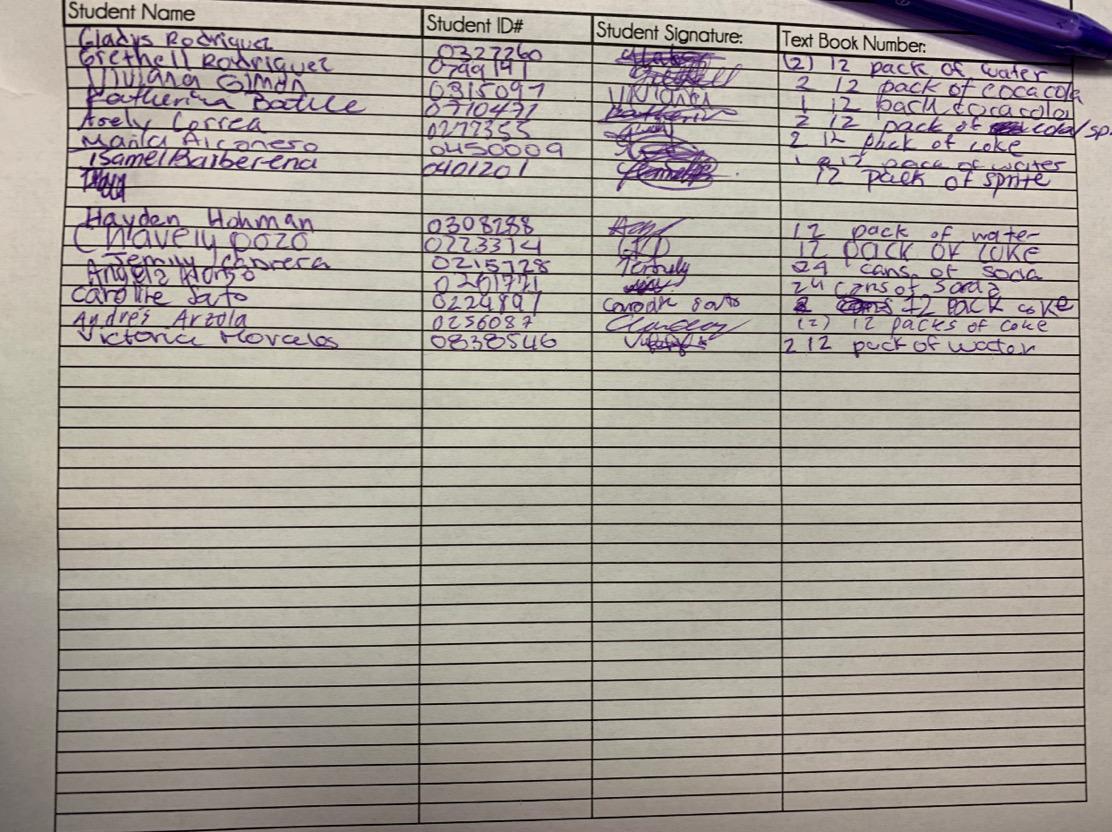 Student Name Student ID# Student Signature: Text Book Number:
Gladys Rodriguez 0327260 (2) 12 pack of water
Grethell Rodriguez 0799191 2 12 pack of cocacola
Viviana 0315097 Viviana 1 12 pack cocacola
Katherina Batlle 0710471 2 12 pack of cola/sp
Arely Correa 0277355 2 12 pack of coke
Maila Alconero 0450009 1 12 pack of water
Isamel Barberena 0401201 12 pack of sprite
Hayden Hohman 0308288 12 pack of water
Chavely pozo 0223314 12 pack of coke
Jemily Cabrera 0215728 Jemily 24 cans of soda
Angelz Alonso 0201771 24 cans of soda
Caroline Soto 0224897 Caroline Soto 12 pack coke
Andres Arzola 0256087 (2) 12 packs of coke
Victoria Morcelos 0838546 2 12 pack of water